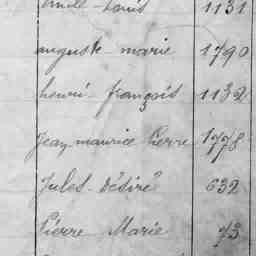 Emile Louis 1131
auguste marie 1790
henri françois 1132
Jean maurice Pierre 1778
Jules Désiré 632
Pierre Marie 73